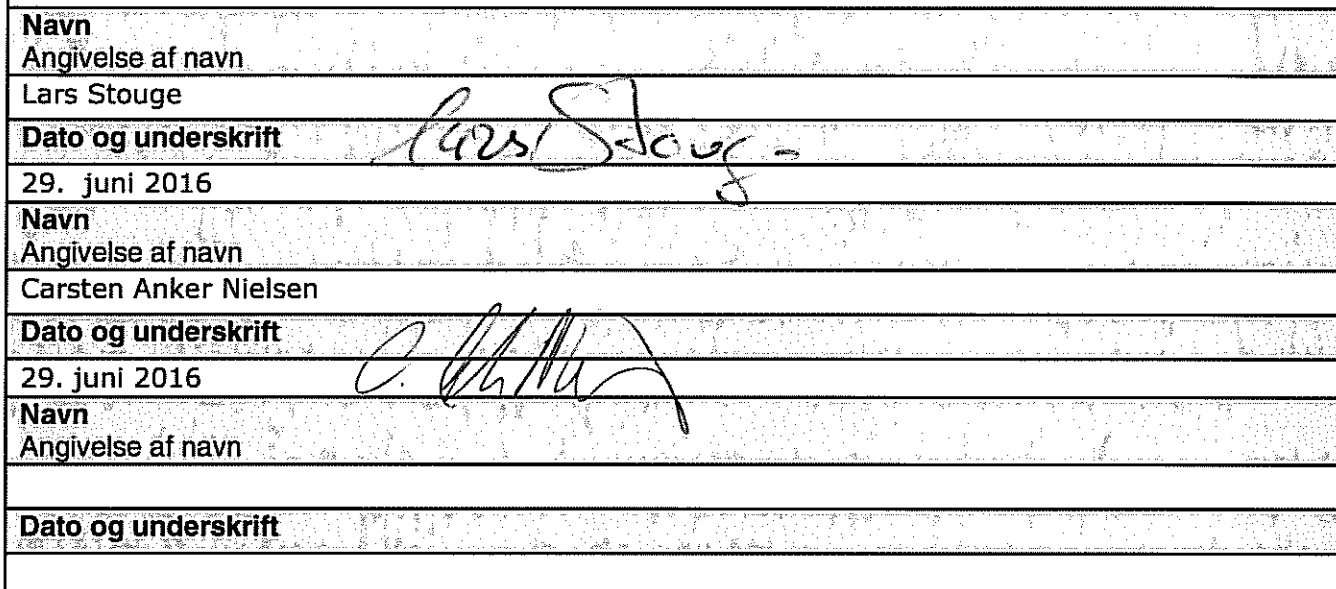 Navn
Angivelse af navn
Lars Stouge
Dato og underskrift
Lars Stouge
29. juni 2016
Navn
Angivelse af navn
Carsten Anker Nielsen
Dato og underskrift
29. juni 2016
Navn
Angivelse af navn
Dato og underskrift